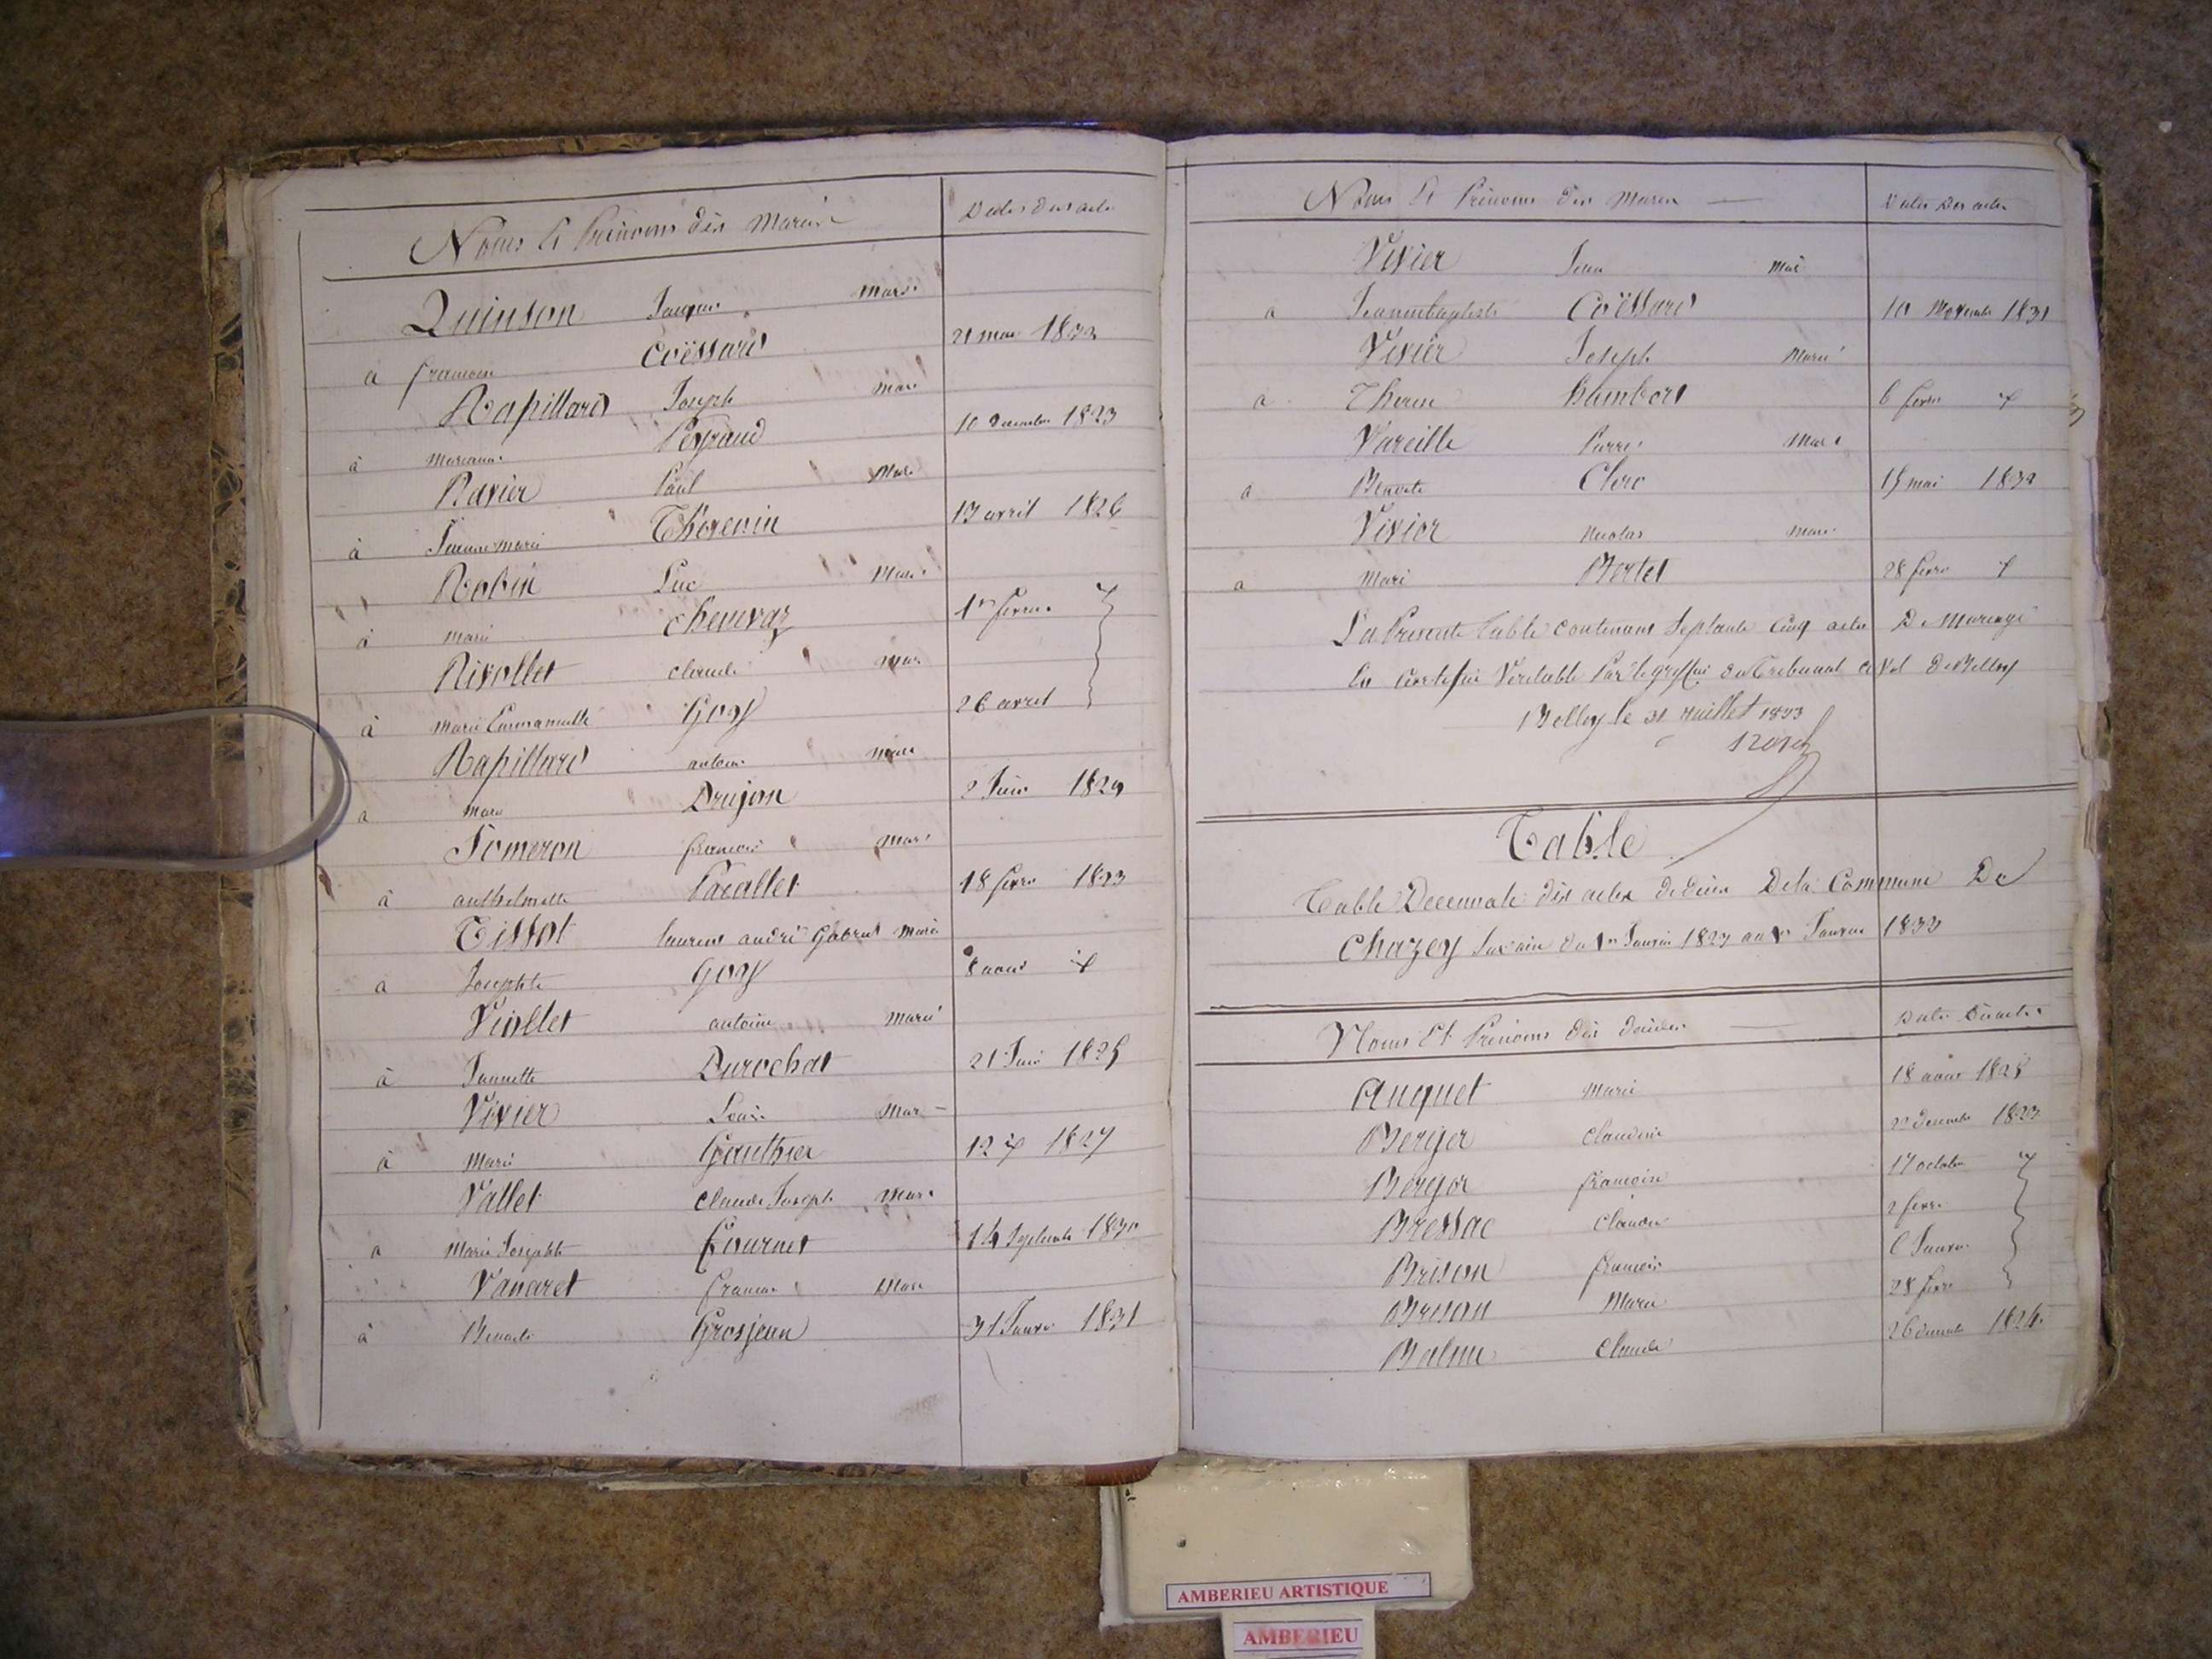 Noms Et Prénoms des Mariés
Dates des actes
Quinson Jacques Marié
à françoise Coëssard 21 mai 1823
Rapillard Joseph Marié
à Marianne Peyraud 10 Decembre 1823
Ravier Paul Marié
à Jeanne Marie Thevenin 13 avril 1826
Robin Luc Marié
à Marie Chenevaz 1er fevrier
Rivollet Claude Marié
à Marie Emmanuelle Goy 26 avril
Rapillard antoine Marié
à Marie Drujon 2 Juin 1829
Someron francois Marié
à anthelmette Pacallet 18 fevr 1823
Tissot laurent andré Gabriel Marié
à Josephte Goy 8 aout
Viollet antoine Marié
à Jeannette Durochat 21 Juin 1825
Vivier Louis Marié
à Marie Gauthier 12 1827
Vallet Claude Joseph Marié
à Marie Josephte fournet 14 Septembre 1830
Vanaret francois Marié
à Benoite Grosjean 31 Janvr 1831
Noms Et Prénoms des Mariés
Dates Des actes
Vivier Jean Marié
à Jeannebaptiste Coëssard 10 Novembre 1831
Vivier Joseph Marié
à Therese humbert 6 fevrier
Vareille Pierre Marié
à Benoite Clerc 15 mai 1832
Vivier Nicolas Marié
à Marie Bertet 28 fevr
La Presente table contenant Septante Cinq actes De Mariage
Est Certifiée Veritable Par le greffier du Tribunal civil de Belley
Belley le 31 Juillet 1833
Table
Table Decennale des actes de déces De la Commune De
Chazey du 1er Janvier 1823 au 1er Janvier 1833
Noms Et Prénoms des décédés
Date Des actes
Anquet Marie 18 aout 1828
Berger Claudine 22 decembre 1823
Berger francoise 17 octobre
Bressac Claudine 2 fevr
Brison francois 6 Janvr
Brison Marie 28 fevr
Balme Claude 26 1824
AMBERIEU ARTISTIQUE
AMBERIEU